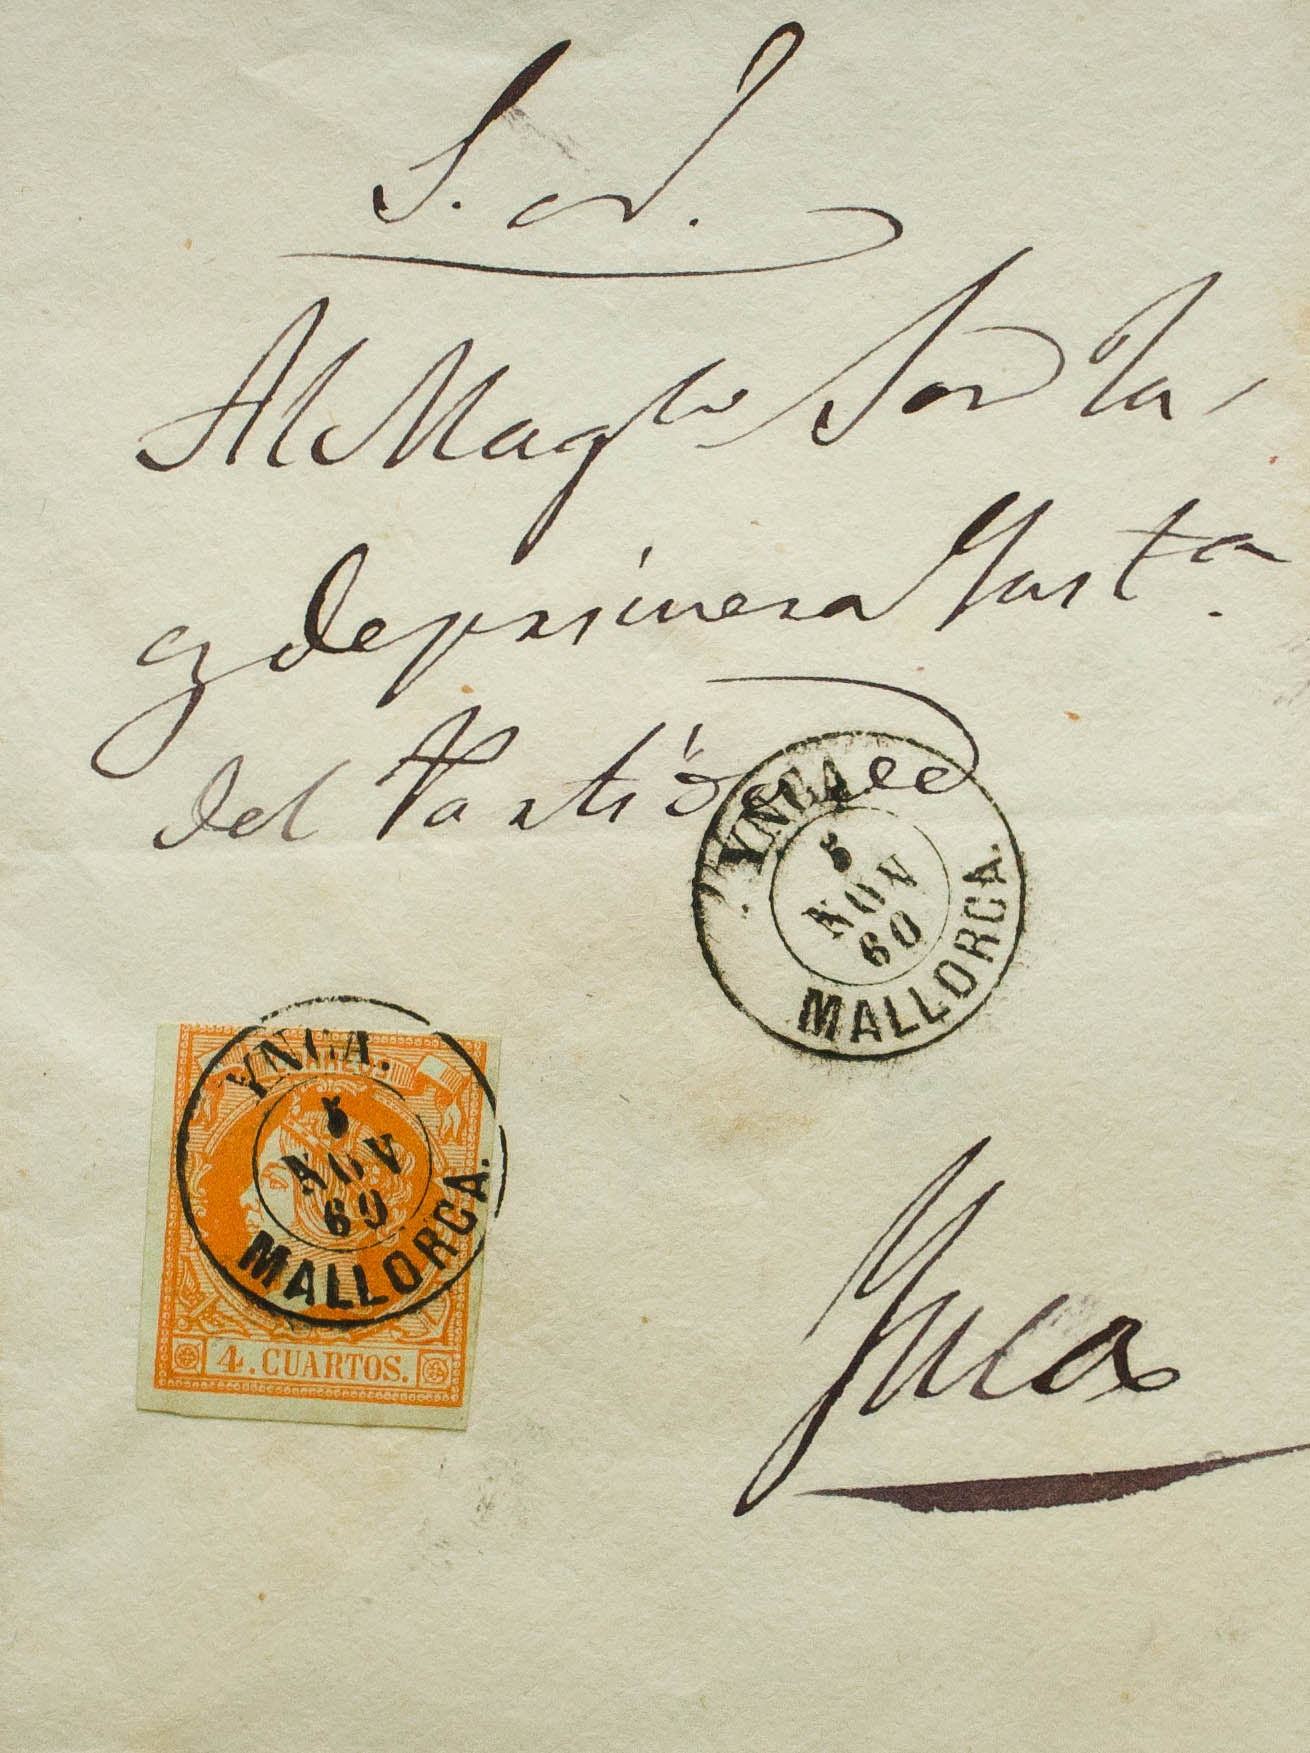 S. N.
Al Mag.co Sor Juez
de primera Inst.a
del Partido de
YNCA.
5
NOV
60
MALLORCA.
YNCA.
CORREOS
5
NOV
60
MALLORCA.
4. CUARTOS.
Ynca